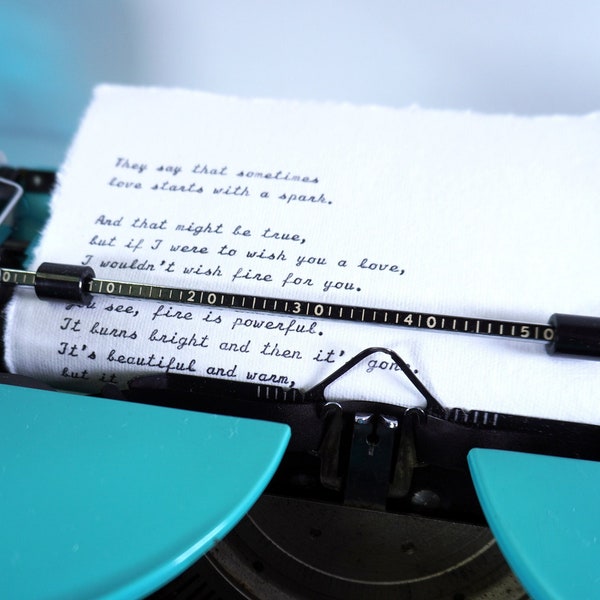 They say that sometimes
love starts with a spark.
And that might be true,
but if I were to wish you a love,
I wouldn't wish fire for you.
0 10 20 30 40 50
You see, fire is powerful.
It burns bright and then it's gone.
It's beautiful and warm,
but it